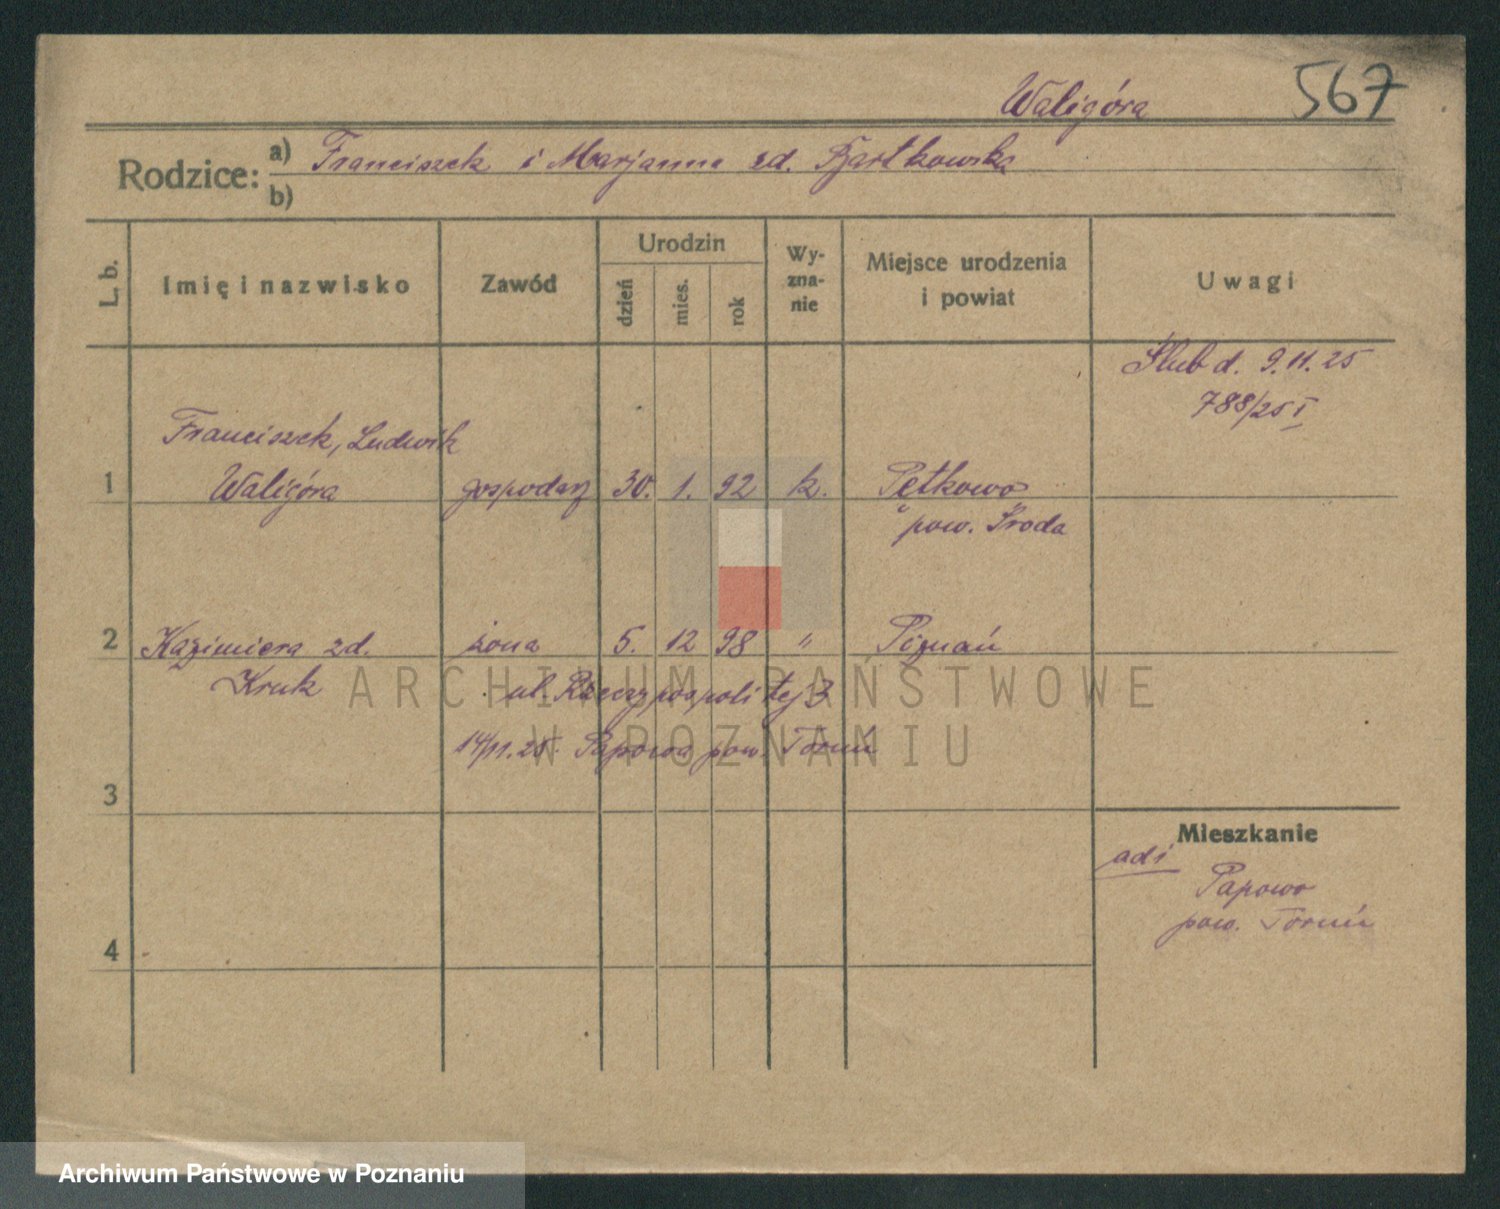 Waligóra 567
Rodzice: a) Franciszek i Marjanna zd. Bartkowska
b)
L. b. Imię i nazwisko Zawód Urodzin dzień mies. rok Wy-zna-nie Miejsce urodzenia i powiat Uwagi
Ślub d. 9.11.25
788/25 I
Franciszek, Ludwik
1 Waligóra gospodarz 30. 1. 92 k. Pętkowo
pow. Środa
2 Kazimiera zd. żona 5. 12 98 " Poznań
Kruk ul. Rzeczypospolitej 3
14/11.25. Papowo pow. Toruń
3
Mieszkanie
adi
Papowo
pow. Toruń
4
ARCHIWUM PAŃSTWOWE
W POZNANIU
Archiwum Państwowe w Poznaniu